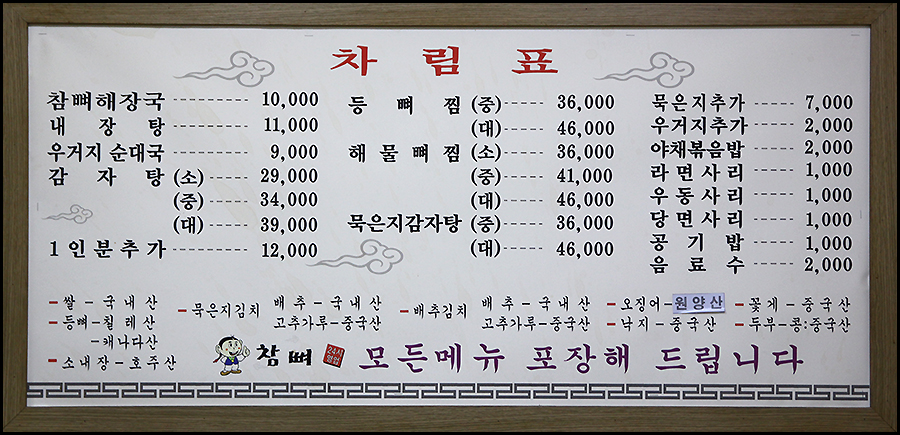 차림표
참뼈해장국 10,000
내장탕 11,000
우거지순대국 9,000
감자탕 (소) 29,000
(중) 34,000
(대) 39,000
1인분추가 12,000
등뼈찜 (중) 36,000
(대) 46,000
해물뼈찜 (소) 36,000
(중) 41,000
(대) 46,000
묵은지감자탕 (중) 36,000
(대) 46,000
묵은지추가 7,000
우거지추가 2,000
야채볶음밥 2,000
라면사리 1,000
우동사리 1,000
당면사리 1,000
공기밥 1,000
음료수 2,000
- 쌀 - 국내산
- 등뼈 - 칠레산
- 캐나다산
- 소내장 - 호주산
- 묵은지김치 배추 - 국내산
고추가루 - 중국산
- 배추김치 배추 - 국내산
고추가루 - 중국산
- 오징어 - 원양산
- 낙지 - 중국산
- 꽃게 - 중국산
- 두부 - 콩:중국산
참뼈 24시 모든메뉴 포장해 드립니다